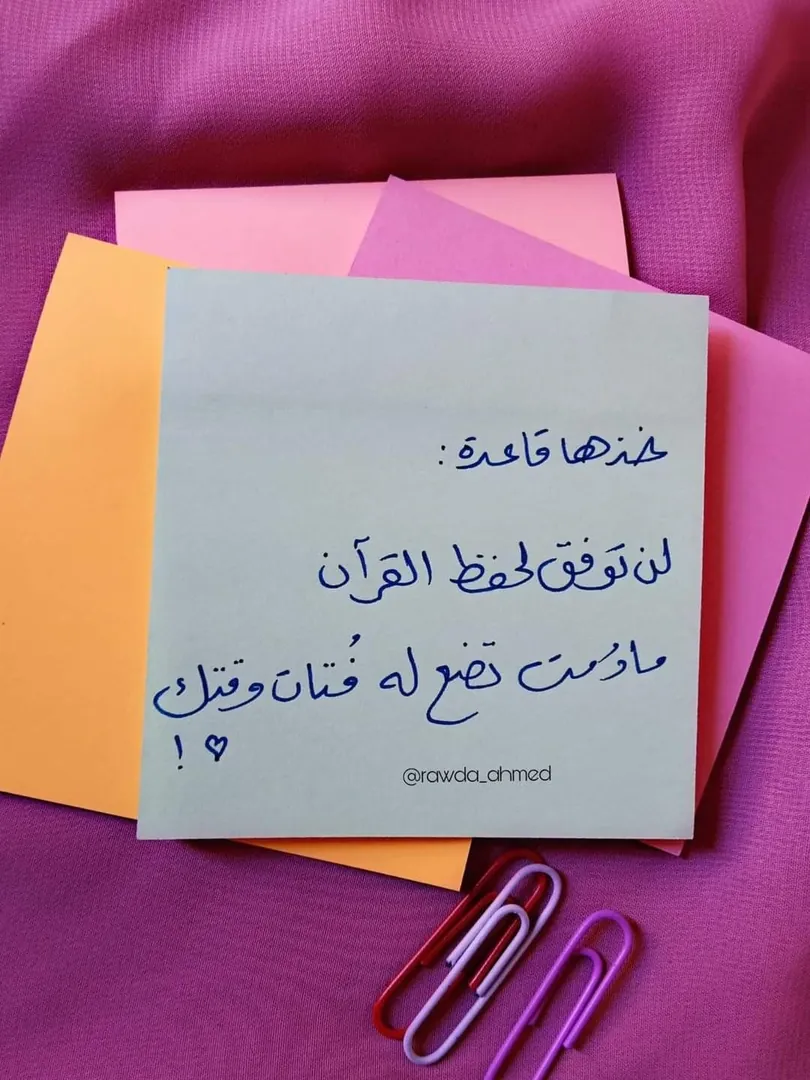 خذها قاعدة :
لن تَوفق لحفظ القرآن
مادُمت تضع له فُتات وقتك
♡ !
@rawda_ahmed